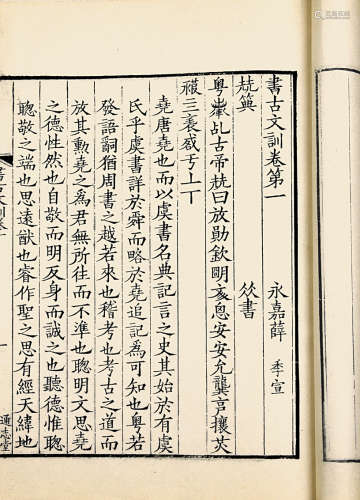 書古文訓卷第一 永嘉薛 季宣
書
粵乩古帝曰放勛欽明恖安安允龏攘
三亏丄丅
堯唐堯也而以虞書名典記言之史其始於有虞
氏乎虞書詳於舜而略於堯追記為可知也粵若
發語詞猶周書之越若來也稽考也考古之道而
放其勳堯之為君無所往而不準也聰明文思堯
之德性然也自敬而明反身而誠之也聽德惟聰
聰敬之端也思遠猷也睿作聖之思有經天緯地
書古文訓卷一
一
通志堂